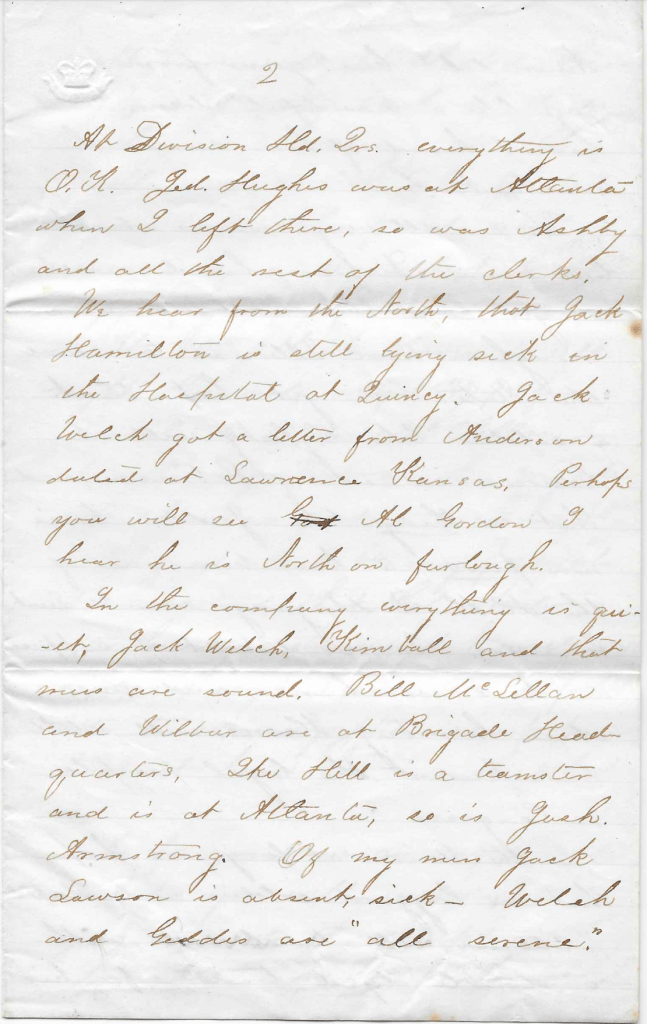 2
At Division Hd. Qrs. everything is
O.K. Jed. Hughes was at Atlanta
when I left there, so was Ashby
and all the rest of the clerks.
We hear from the North, that Jack
Hamilton is still lying sick in
the Hospital at Quincy. Jack
Welch got a letter from Anderson
dated at Lawrence Kansas, Perhaps
you will see Al Gordon I
hear he is North on furlough.
In the company everything is qui-
-et, Jack Welch, Kimball and that
mess are sound. Bill McLellan
and Wilbur are at Brigade Head-
quarters, Ike Hill is a teamster
and is at Atlanta, so is Josh.
Armstrong. Of my mess Jack
Lawson is absent, sick – Welch
and Geddes are "all serene."